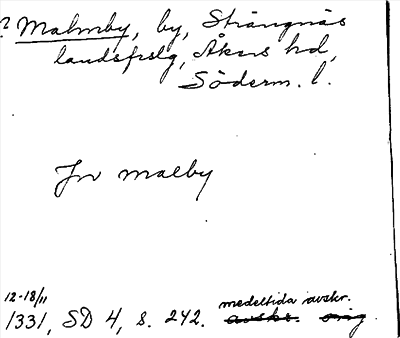 ? Malmby, by, Strängnäs
landsfslg, Åkers hd,
Söderm. l.
Jn malby
12-18/11
medeltida avskr.
1331, SD 4, s. 242. avskr. orig